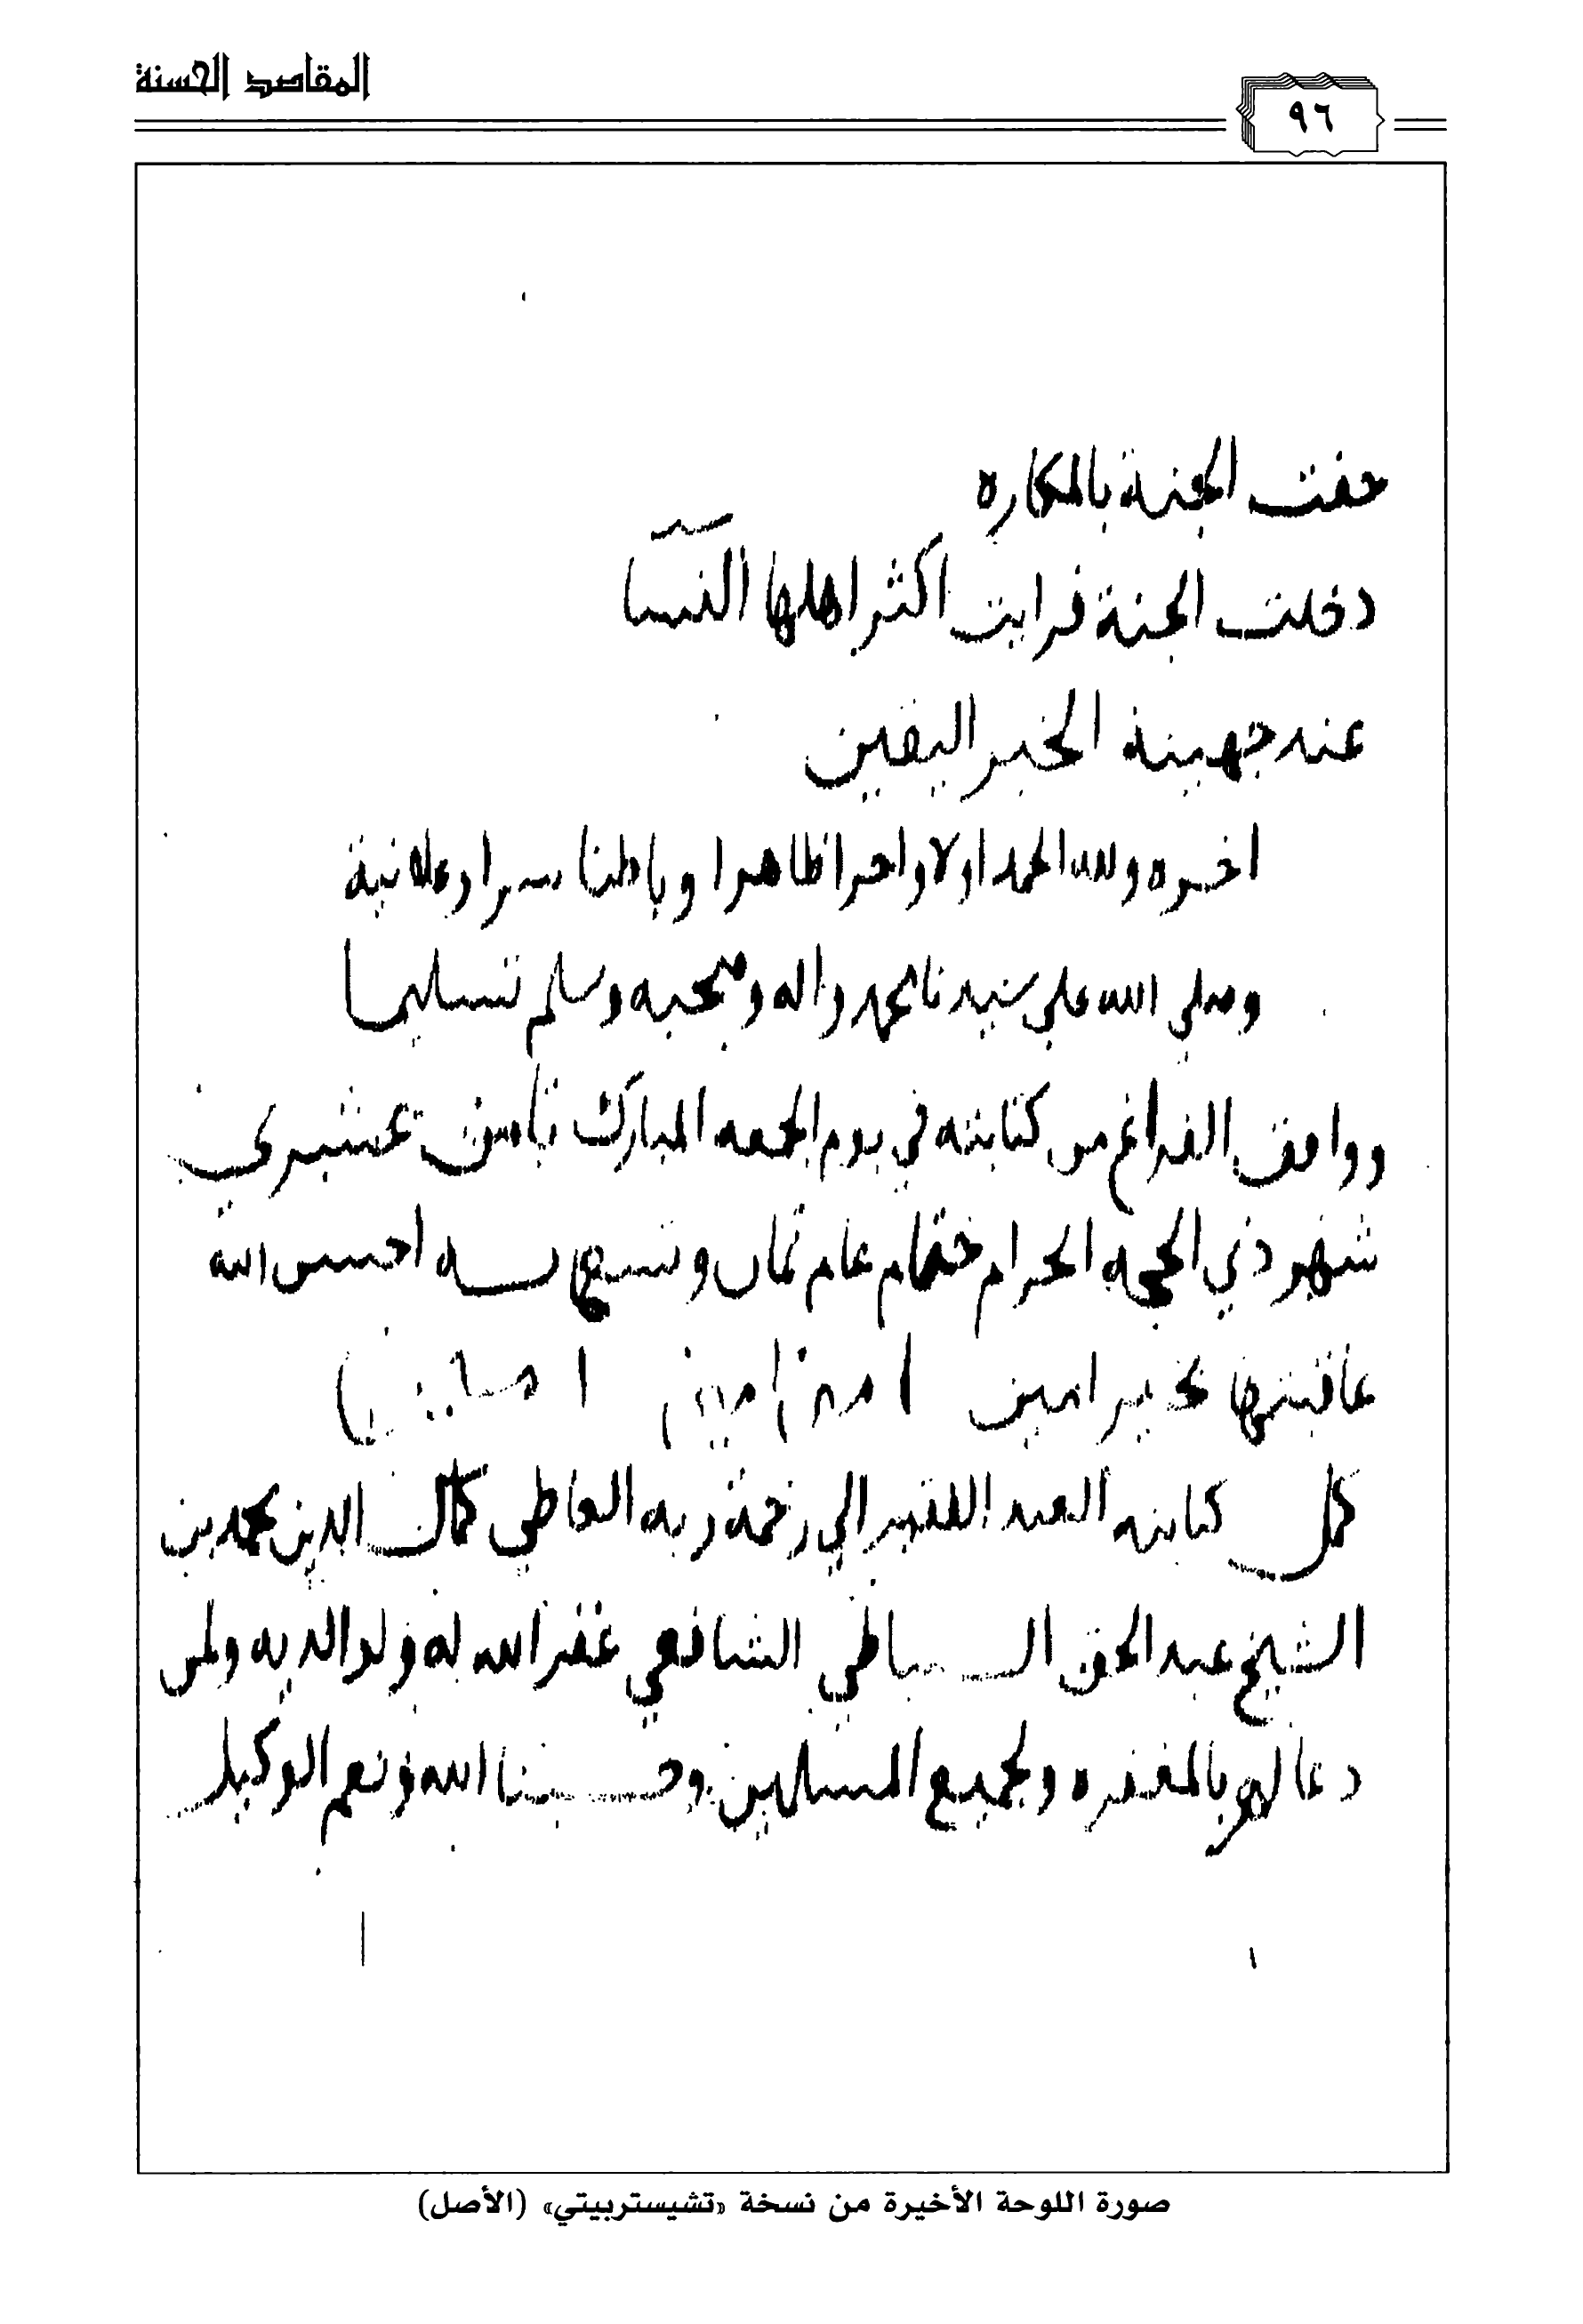 المقاصد الحسنة
٩٦
حفت الجنة بالمكاره
دخلت الجنة فرايت اكثر اهلها النسا
عند جهينة الخبر اليقين
اخره ولله الحمد اولا واخرا ظاهرا وباطنا سرا وعلانية
وصلي الله علي سيدنا محمد واله وصحبه وسلم تسليما
ووافق الفراغ من كتابته في يوم الجمعه المبارك ثامن عشري
شهر ذي الحجه الحرام ختام عام ثمان وتسعماىه احسن الله
عاقبتها بخير امين امين امين امين
كمل كتابته العبد الفقير الي رحمة ربه العاطي كمال الدين محمد بن
الشيخ عبد الحق السنباطي الشافعي غفر الله له ولوالديه ولمن
دعا لهم بالمغفره ولجميع المسلمين وحسبنا الله ونعم الوكيل
صورة اللوحة الأخيرة من نسخة «تشيستربيتي» (الأصل)